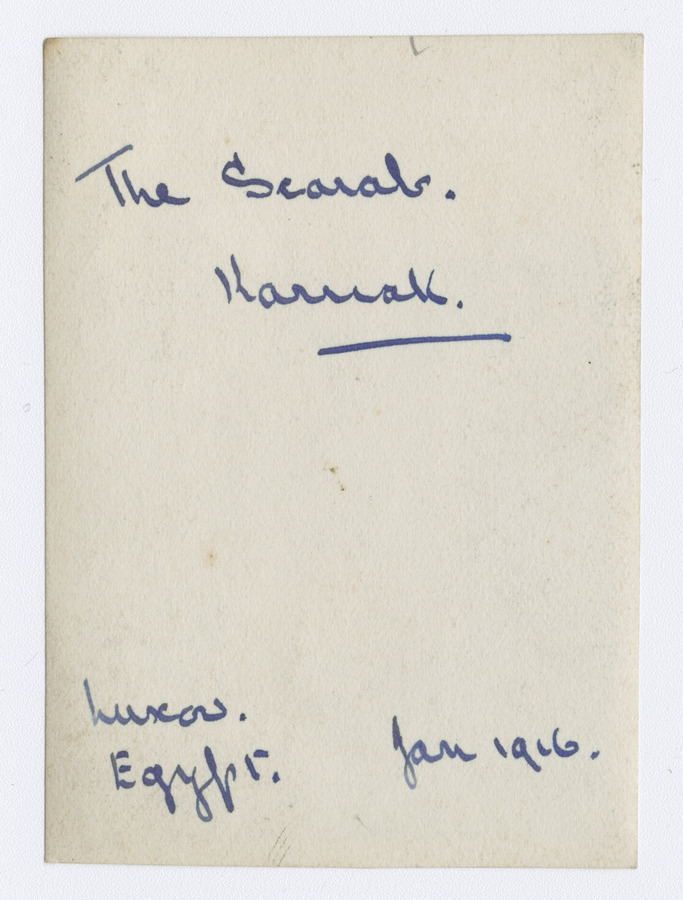 The Scarab.
Karnak.
Luxor.
Egypt.
Jan 1916.